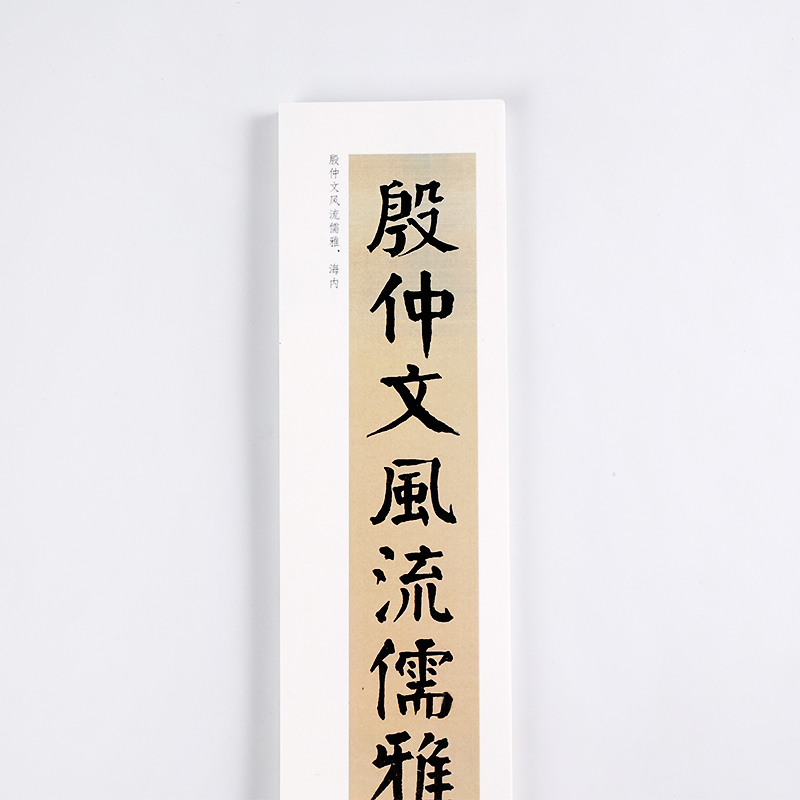 殷仲文風流儒雅
殷仲文风流儒雅，海内